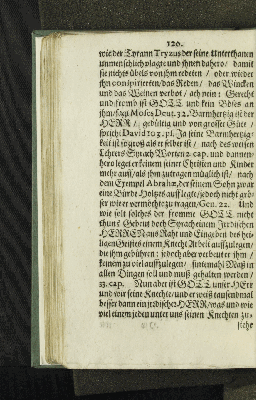 120.
wie der Tyrann Tryzus der seine Unterthanen
unmenschlich plagte und ihnen dahero / damit
sie nichts übels von ihm redeten / oder wieder
ihn conspirierten / das Reden / das Wincken
und das Weinen verbot / ach nein: Gerecht
und fromb ist GOTT und kein Böses an
ihm / sagt Moses Deut. 32. Barmhertzig ist der
HERR / gedültig und von grosser Güte /
spricht David 103. pf. Ja seine Barmhertzig-
keit ist so groß als er selber ist / nach des weisen
Lehrers Syrach Worten 2. cap. und dannen-
hero leget er keinem seiner Christen und Kinder
mehr auff / als ihm zutragen müglich ist / nach
dem Exempel Abrahæ, der seinem Sohn zwar
eine Bürde Holtzes aufflegte / jedoch nicht größ-
ser wie er vermöchte zu tragen / Gen. 22. Und
wie solt solches der fromme GOTT nicht
thun? Gebeut doch Syrach einem Irrdischen
HERREN aus Raht und Eingeben des hei-
ligen Geistes einem Knecht Arbeit auffzulegen /
die ihm gebühren: jedoch aber verbeut er ihm /
keinem zu viel auffzulegen / sintemahl Maß in
allen Dingen soll und muß gehalten werden /
33. cap. Nun aber ist GOTT unser HErr
und wir seine Knechte / und er weiß tausendmal
besser dann ein irdischer HERR / was und wie
viel einem jeden unter uns seinen Knechten zu-
stehe